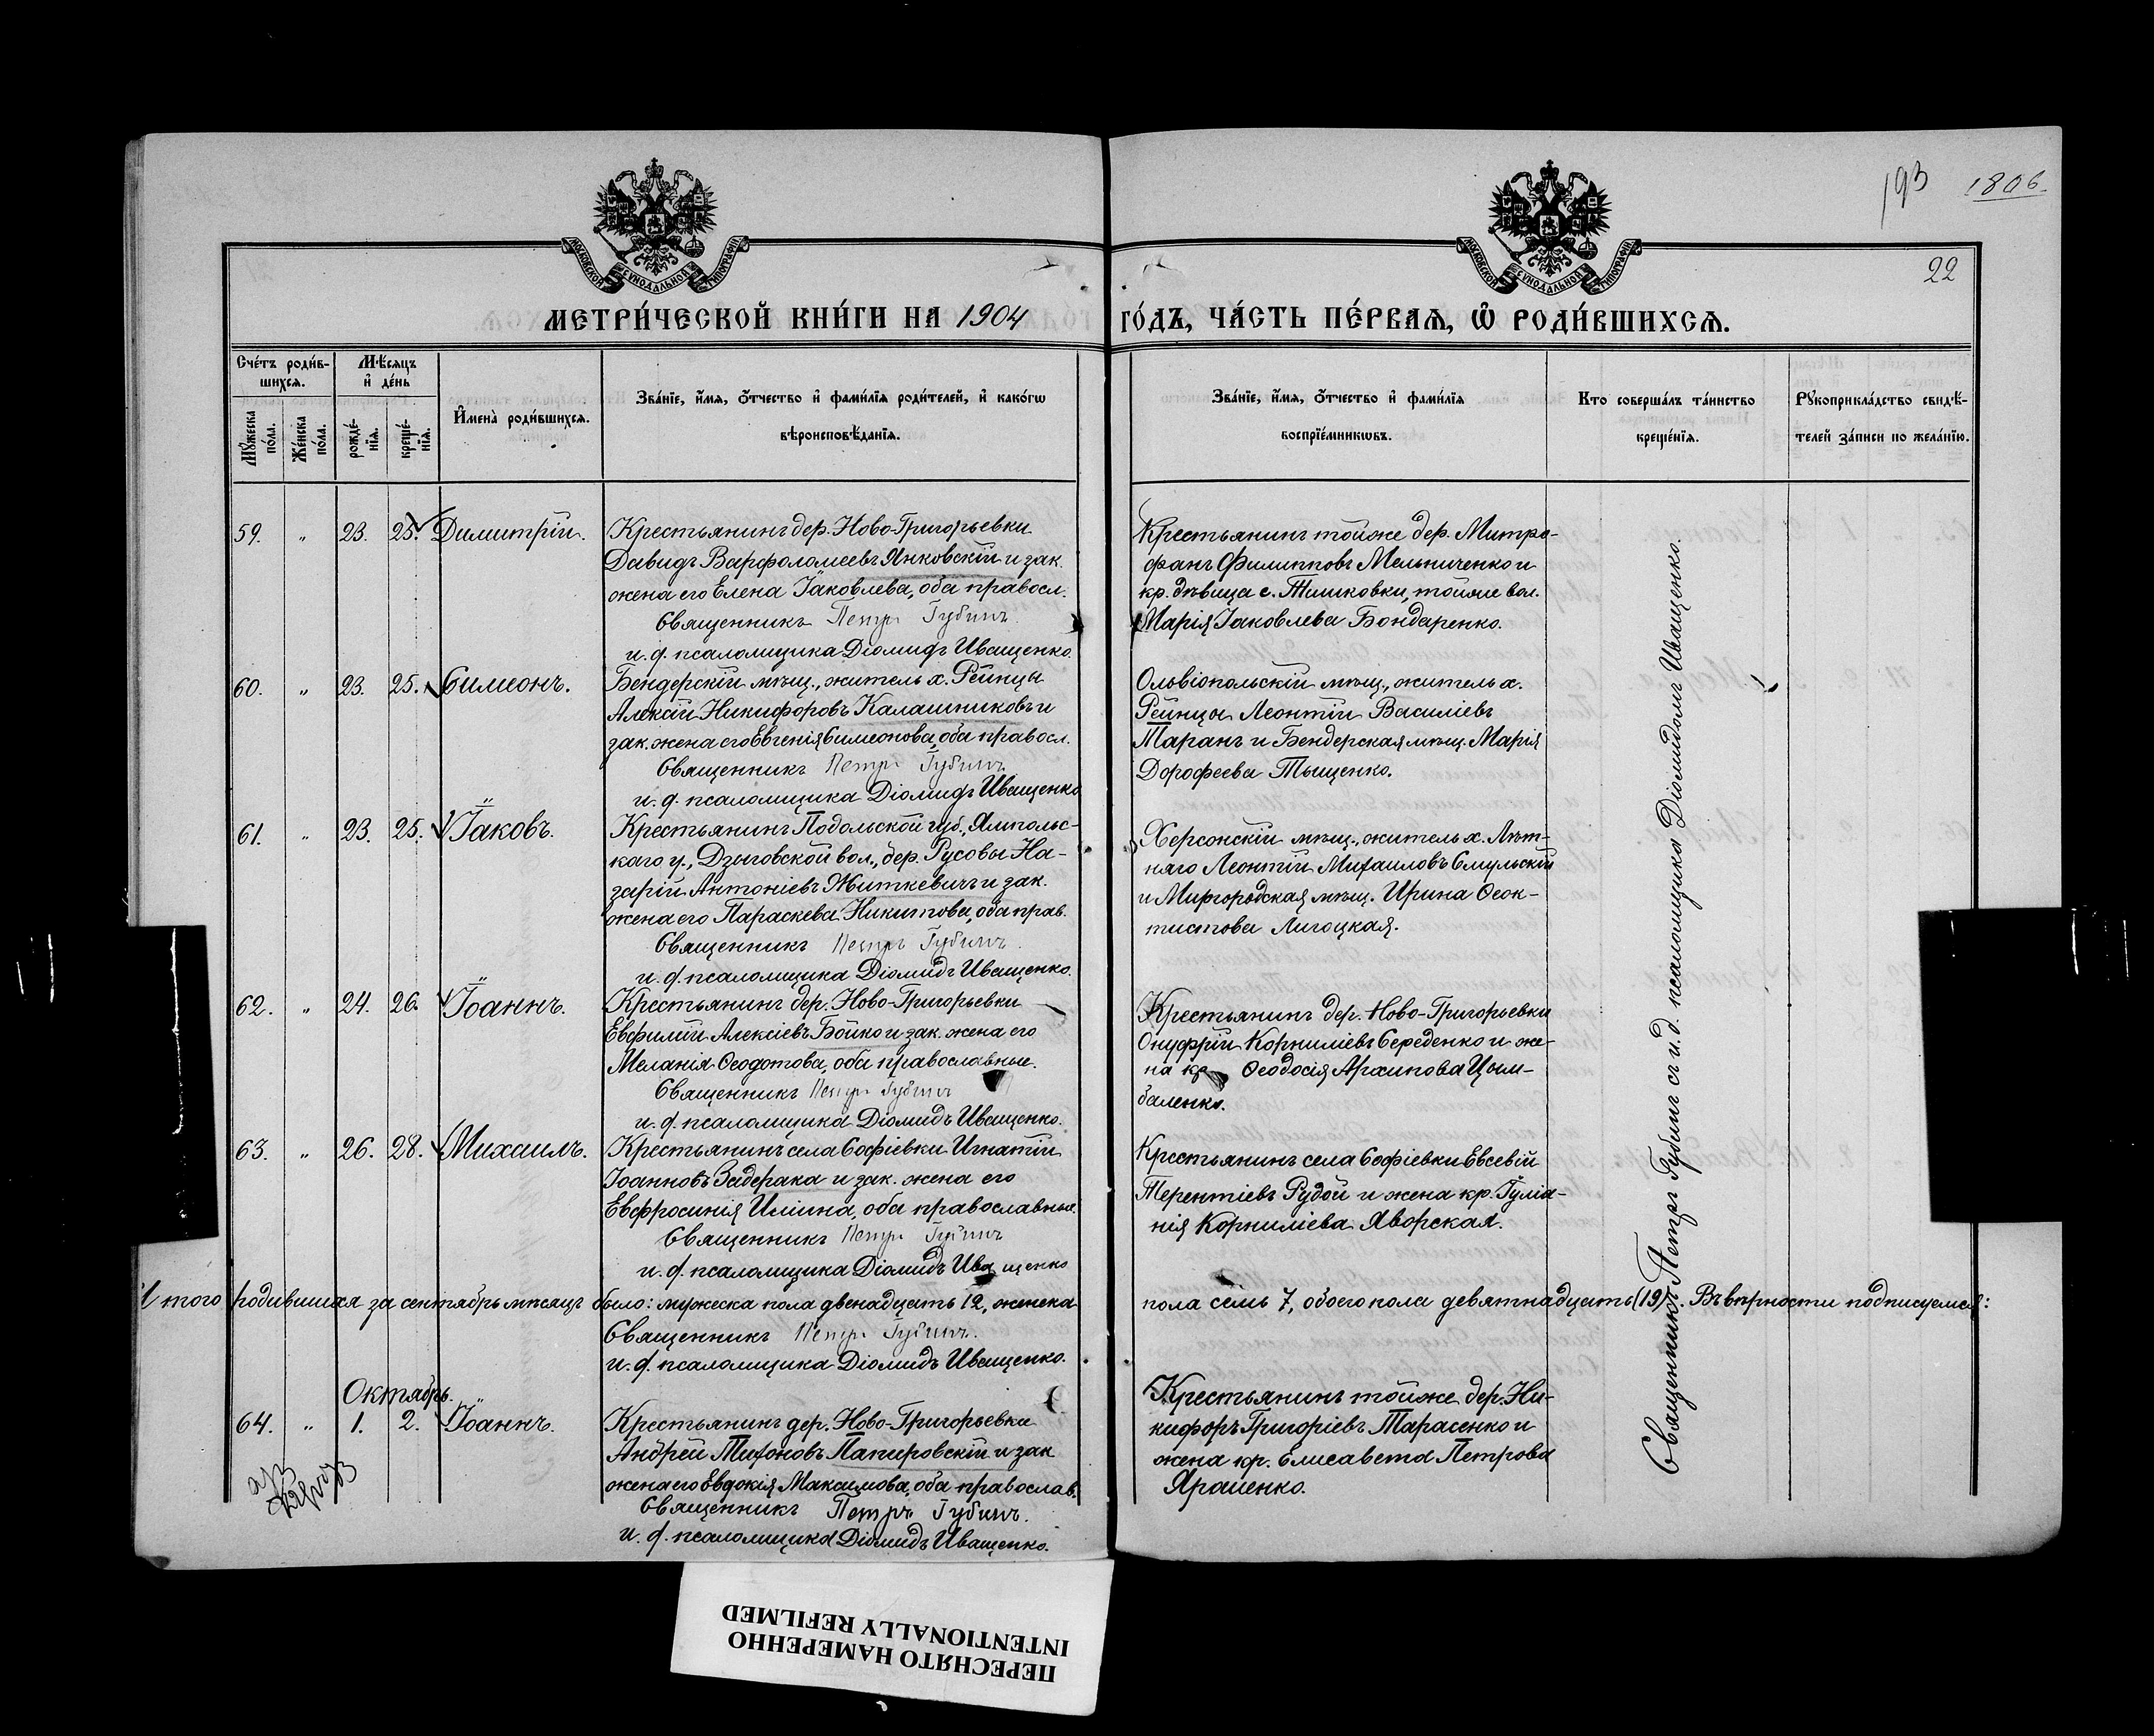 193 1806.
22
МОСКОВСКОЙ СѴНОДАЛЬНОЙ ТИПОГРАФІИ
МОСКОВСКОЙ СѴНОДАЛЬНОЙ ТИПОГРАФІИ
МЕТРИ́ЧЕСКОЙ КНИ́ГИ НА 1904 ГО́ДЪ, ЧА́СТЬ ПЕ́РВАѦ, Ѡ҆ РОДИ́ВШИХСѦ.
Счéтъ роди́в-
шихсѧ.
Мꙋ́жеска по́ла.
Же́нска по́ла.
Мѣ́сѧцъ
и҆ де́нь
рожде́-
нїѧ.
креще́-
нїѧ.
И҆мена̀ роди́вшихсѧ.
Зва́нїе, и҆́мѧ, ѻ҆́тчество и҆ фами́лїѧ роди́телей, и҆ како́гѡ
вѣроисповѣ́данїѧ.
Зва́нїе, и҆́мѧ, ѻ҆́тчество и҆ фами́лїѧ
воспрїе́мникѡвъ.
Кто̀ соверша́лъ та́инство
креще́нїѧ.
Рꙋкоприкла́дство свидѣ́-
телей за́писи по жела́нїю.
59. " 23. 25. Димитрій.
Крестьянинъ дер. Ново-Григорьевки
Давидъ Варфоломеевъ Янковскій и зак.
жена его Елена Іаковлева, оба правосл.
Священникъ Петръ Губинъ.
и. д. псаломщика Діомидъ Иващенко.
Крестьянинъ тойже дер. Митро-
фанъ Филипповъ Мельниченко и
кр. дѣвица с. Тимковки, тойже вол.
Марія Іаковлева Бондаренко.
60. " 23. 25. Симеонъ.
Бендерскій мѣщ., житель х. Рейнцы
Алексій Никифоровъ Калашниковъ и
зак. жена его Евгенія Симеонова, оба правосл.
Священникъ Петръ Губинъ.
и. д. псаломщика Діомидъ Иващенко
Ольвіопольскій мѣщ., житель х.
Рейнцы Леонтій Василіевъ
Таранъ и Бендерская мѣщ. Марія
Дорофеева Тыщенко.
61. " 23. 25. Іаковъ.
Крестьянинъ Подольской губ., Ямпольс-
каго у., Дзыговской вол., дер. Русовы На-
зарій Антоніевъ Житкевичъ и зак.
жена его Параскева Никитова, оба прав.
Священникъ Петръ Губинъ.
и. д. псаломщика Діомидъ Иващенко.
Херсонскій мѣщ., житель х. Лѣт-
няго Леонтій Михаиловъ Смульскій
и Миргородская мѣщ. Ирина Ѳеок-
тистова Лигоцкая.
62. " 24. 26. Іоаннъ.
Крестьянинъ дер. Ново-Григорьевки
Евфимій Алексіевъ Бойко и зак. жена его
Меланія Ѳеодотова, оба православные.
Священникъ Петръ Губинъ
и. д. псаломщика Діомидъ Иващенко.
Крестьянинъ дер. Ново-Григорьевки
Онуфрій Корниліевъ Середенко и же-
на кр. Ѳеодосія Архипова Цым-
баленко.
63. " 26. 28. Михаилъ.
Крестьянинъ села Софіевки Игнатій
Іоанновъ Задерака и зак. жена его
Евфросинія Иліина, оба православные.
Священникъ Петръ Губинъ
и. д. псаломщика Діомидъ Иващенко
Крестьянинъ села Софіевки Евсевій
Терентіевъ Рудой и жена кр. Іуліа-
нія Корниліева Яворская.
Итого родившихся за сентябрь мѣсяцъ было: мужеска пола двенадцать 12, женска пола семь 7, обоего пола девятнадцать (19). Въ вѣрности подписуемся:
Священникъ Петръ Губинъ.
и. д. псаломщика Діомидъ Иващенко.
Октябрь.
64. " 1. 2. Іоаннъ.
Крестьянинъ дер. Ново-Григорьевки
Андрей Тихоновъ Папировскій и зак
жена его Евдокія Максимова, оба православ.
Священникъ Петръ Губинъ.
и. д. псаломщика Діомидъ Иващенко.
Крестьянинъ тойже дер. Ни-
кифоръ Григоріевъ Тарасенко и
жена кр. Елисавета Петрова
Яраденко.
Священникъ Петръ Губинъ съ и. д. псаломщика Діомидомъ Иващенко.
ПЕРЕСНЯТО НАМЕРЕННО
INTENTIONALLY REFILMED